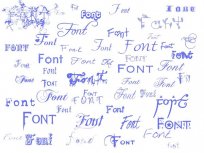 Font
Font
Font
Font
Font
Font
Font
Font
FONT
Font
Font
Font
Font
Font
Font
Font
Font
Font
Font
Font
Font
FONT
Font
Font
Font
Font
Font
FONT
Font
Font
FONT
Font
Font
Font
Font
Font
FONT
Font
Font
Font
Font
Font